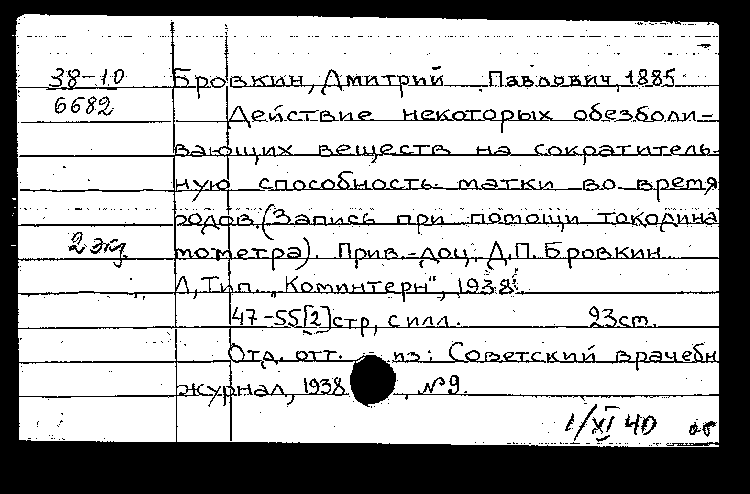 38-10 Бровкин, Дмитрий Павлович, 1885
6682 Действие некоторых обезболи-
вающих веществ на сократитель-
ную способность матки во время
родов. (Запись при помощи токодина
2 экз. мометра). Прив.-доц. Д.П. Бровкин
Л, Тип. „Коминтерн", 1938.
47-55 [2] стр, с илл. 23 см.
Отд. отт. из: Советский врачебн
журнал, 1938, №9.
1/XI 40